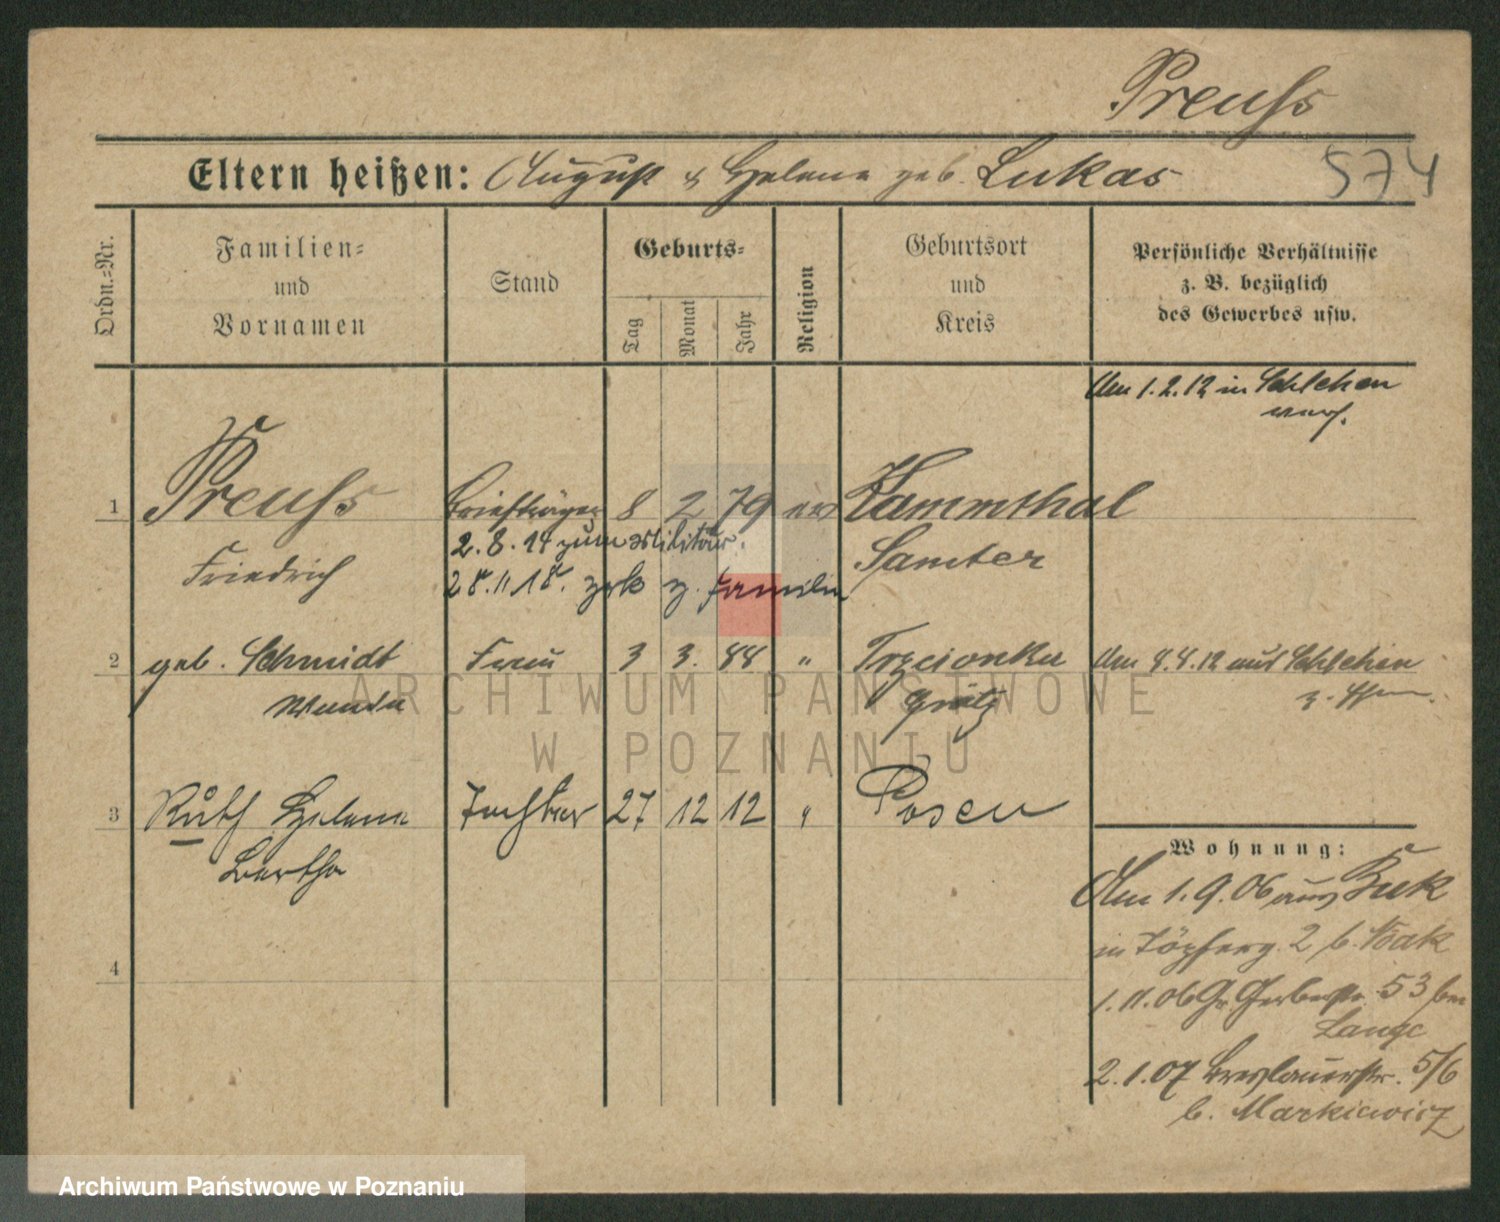 Preuss
574
Eltern heißen: August & Helene geb. Lukas
Ordn.-Nr.
Familien-
und
Vornamen
Stand
Geburts-
Tag
Monat
Jahr
Religion
Geburtsort
und
Kreis
Persönliche Verhältnisse
z. B. bezüglich
des Gewerbes usw.
Am 1.2.12 in Schlehen
1 Preuss Briefträger 8 2 79 ev Kammthal
2.8.14 zum Militär.
Friedrich Samter
28.11.18. zrk z. Familie
2 geb. Schmidt Frau 3 3. 88 " Trzcionka Am 8.4.12 aus Schlehen
Wanda Grätz
3 Ruth Helene Tochter 27 12 12 " Posen
Bertha
4
Wohnung:
Am 1.9.06 aus Buk
in Töpferg. 2 b. Bak
1.11.06 Gr. Gerberstr. 53 bei
Lange
2.1.07 Breslauerstr. 5/6
b. Markiewicz
ARCHIWUM PAŃSTWOWE
W POZNANIU
Archiwum Państwowe w Poznaniu